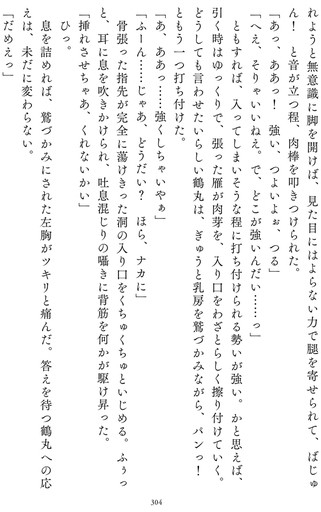 れようと無意識に脚を開けば、見た目にはよらない力で腿を寄せられて、ばじゅ
ん！　と音が立つ程、肉棒を叩きつけられた。
「あっ、ああっ！　強い、つよいよぉ、つる」
「へえ、そりゃいいねぇ。で、どこが強いんだい……っ」
ともすれば、入ってしまいそうな程に打ち付けられる勢いが強い。かと思えば、
引く時はゆっくりで、張った雁が肉芽を、入り口をわざとらしく擦り付けていく。
どうしても言わせたいらしい鶴丸は、ぎゅうと乳房を鷲づかみながら、パンっ！
ともう一つ打ち付けた。
「あ、ああっ……強くしちゃいやぁ」
「ふーん……じゃあ、どうだい？　ほら、ナカに」
骨張った指先が完全に蕩けきった洞の入り口をくちゅくちゅといじめる。ふぅっ
と、耳に息を吹きかけられ、吐息混じりの囁きに背筋を何かが駆け昇った。
「挿れさせちゃあ、くれないかい」
ひっ。
息を詰めれば、鷲づかみにされた左胸がツキリと痛んだ。答えを待つ鶴丸への応
えは、未だに変わらない。
「だめえっ」
304